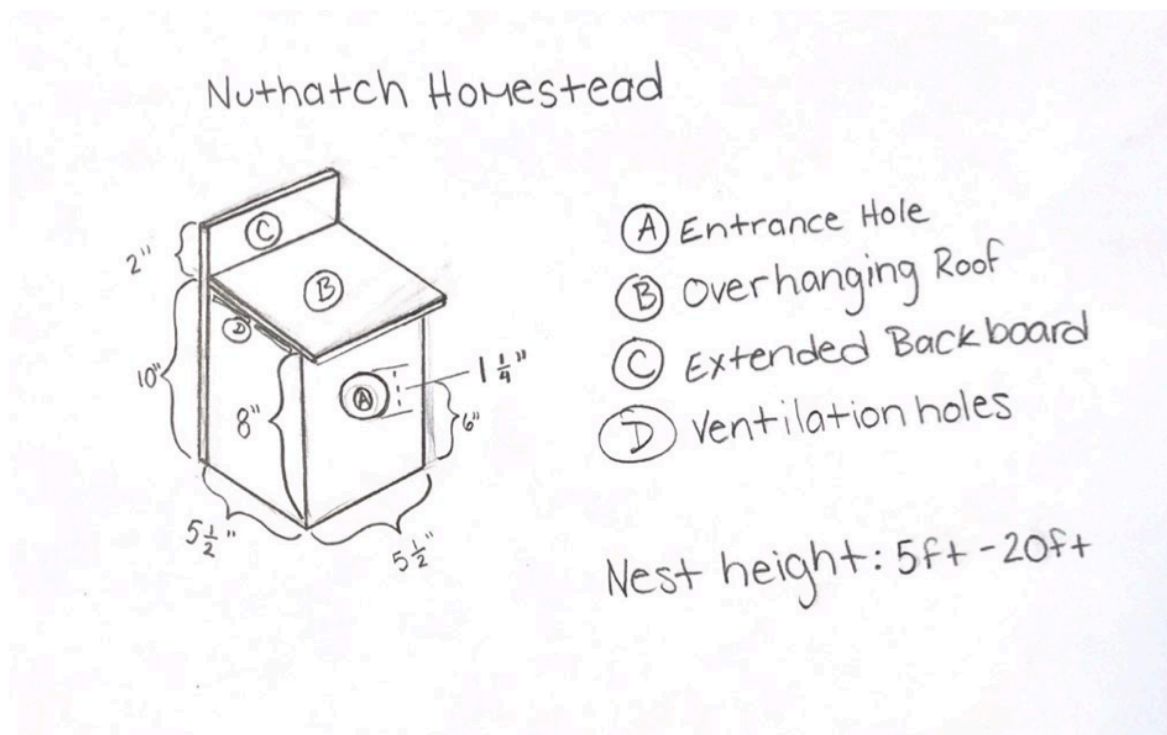 Nuthatch Homestead
C
2"
B
D
10"
8"
A
1 1/4"
6"
5 1/2"
5 1/2"
A Entrance Hole
B Overhanging Roof
C Extended Backboard
D Ventilation holes
Nest height: 5ft - 20ft